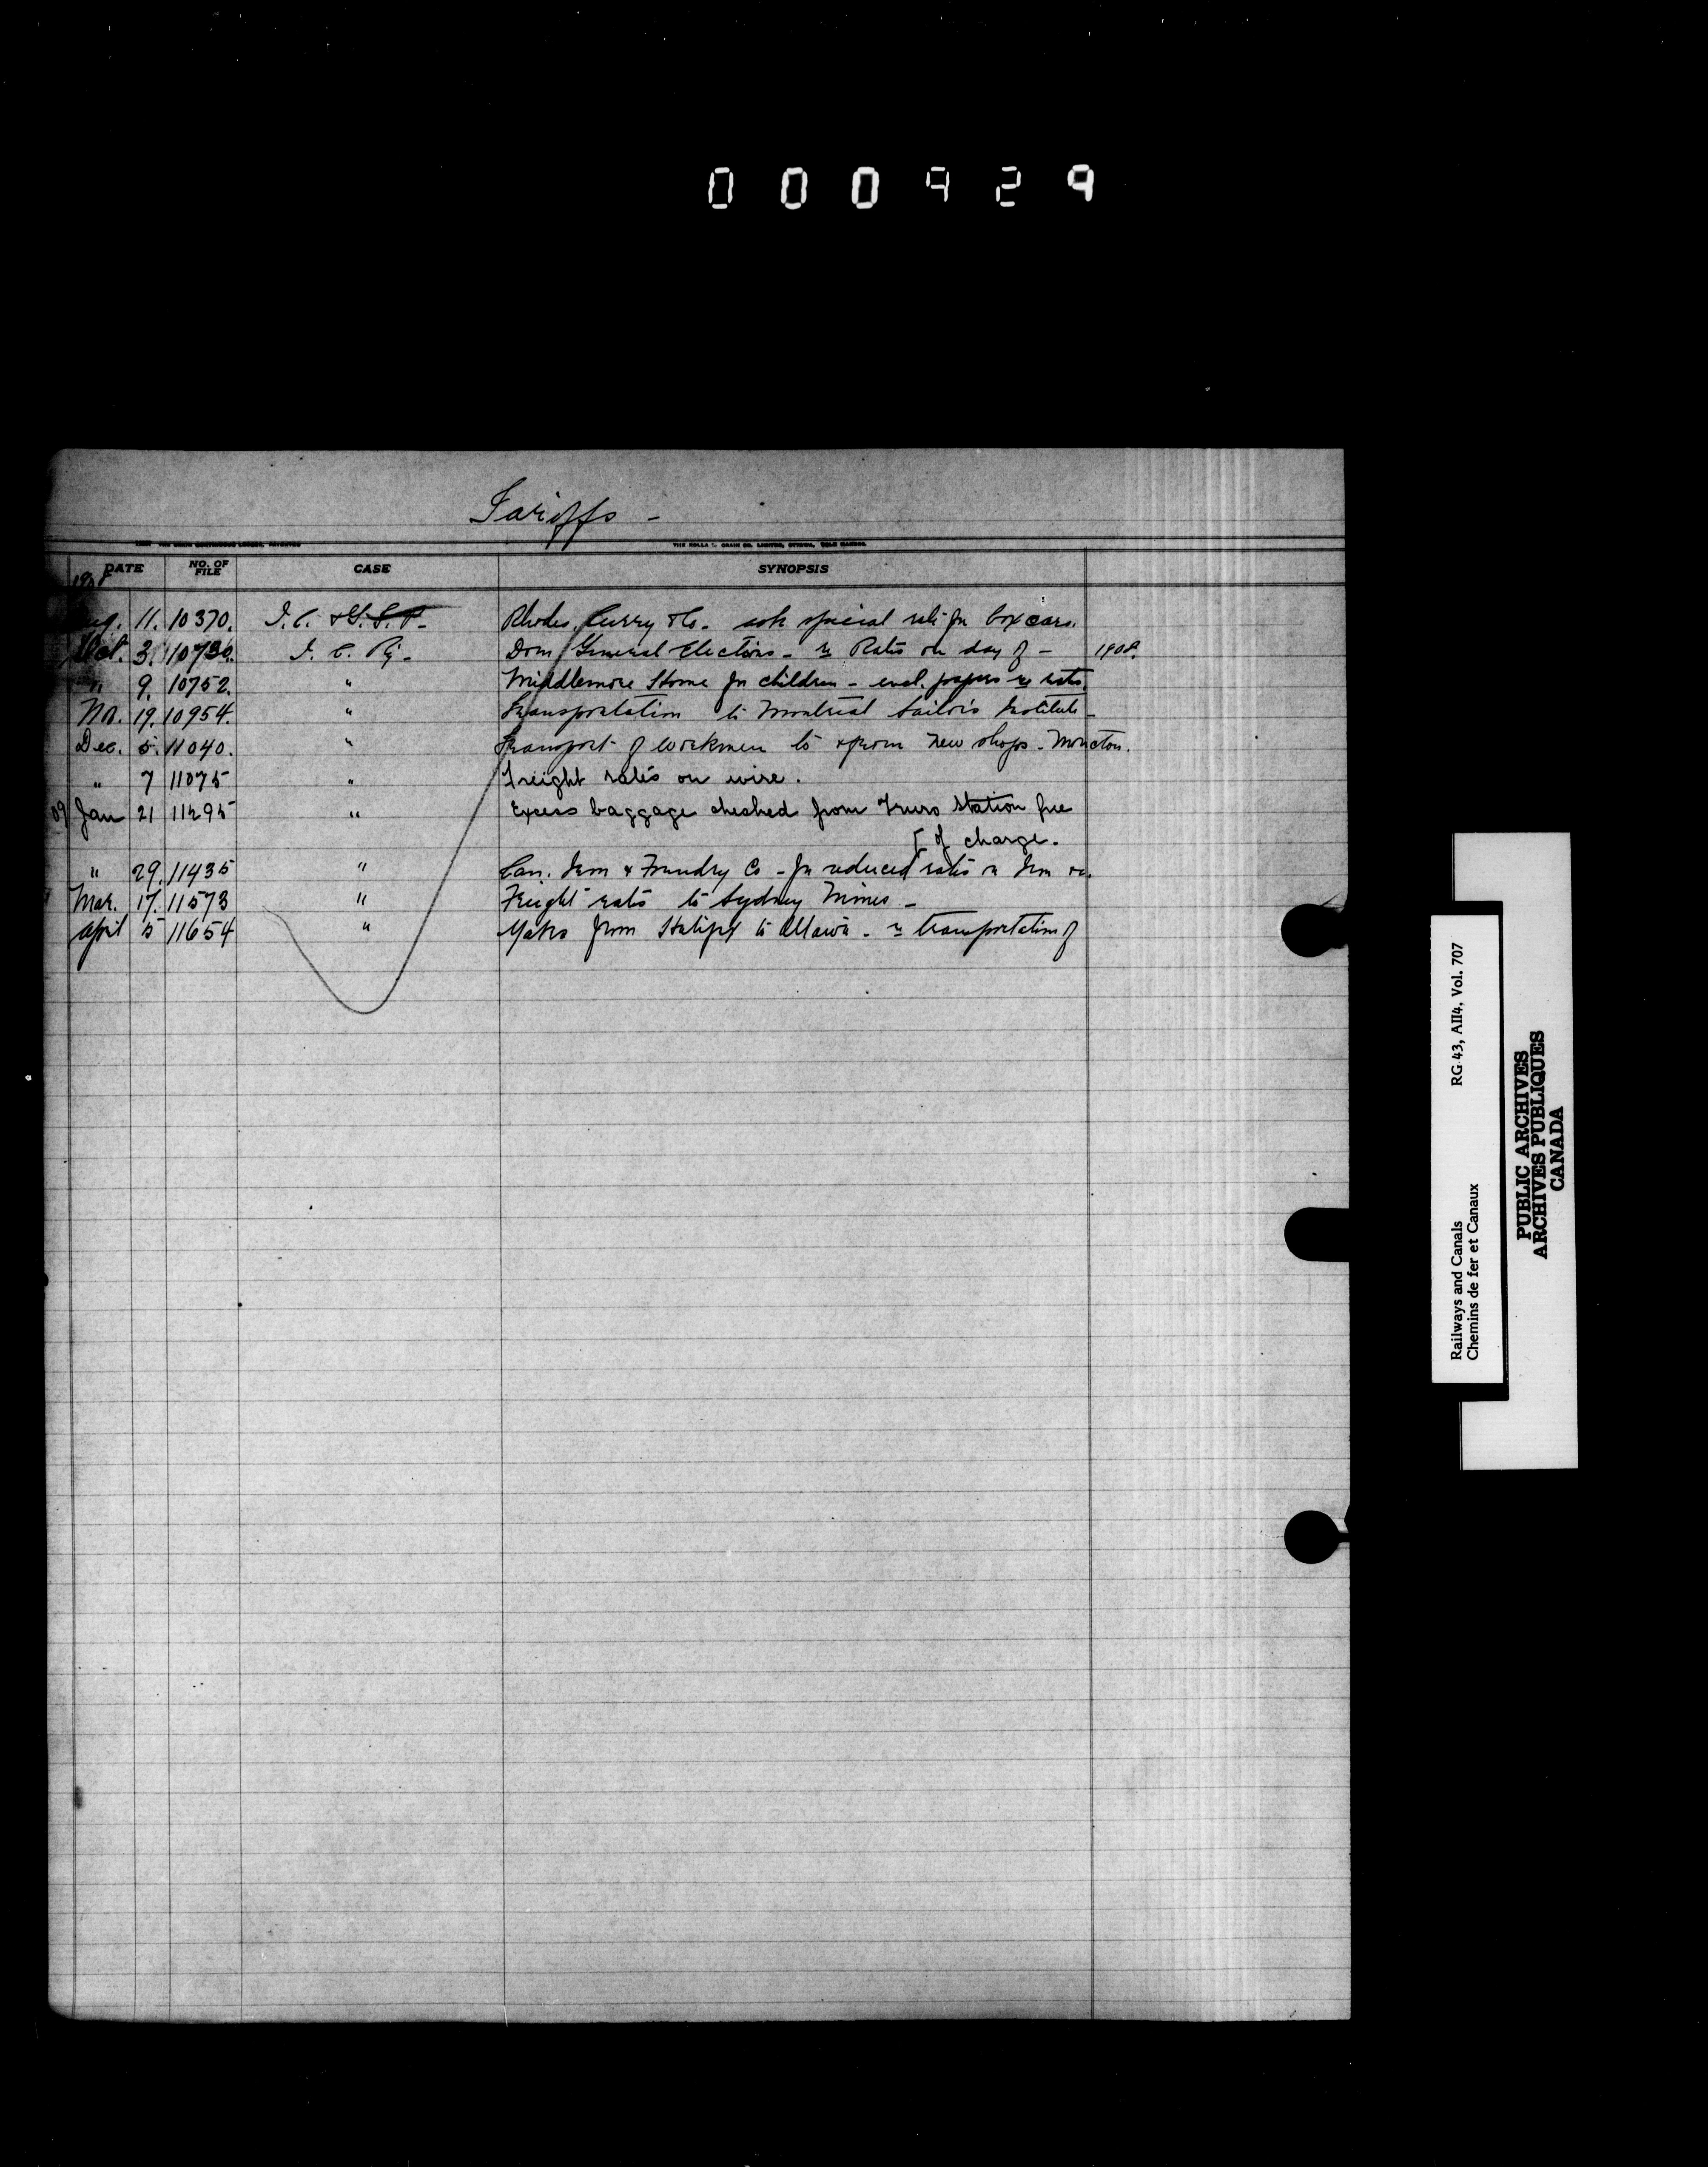 000929
Tariffs -
DATE NO. OF FILE CASE SYNOPSIS
1908
Aug. 11. 10370. I.C. & G.T.P. Rhodes, Curry & Co. ask special rate for box cars.
Oct. 3. 10730. I. C. Ry. Dom General Elections - re Rates on day of - 1908.
" 9. 10752. " Middlemore Home for children - encl. papers re rates.
Nov. 19. 10954. " Transportation to Montreal Sailors Institute -
Dec. 5. 11040. " Transport of workmen to & from new shops - Moncton.
" 7 11075 " Freight rates on wire.
09 Jan 21 11295 " Excess baggage checked from Truro Station free
[ of charge.
" 29. 11435 " Can. Iron & Foundry Co - for reduced rates on Iron
Mar. 17. 11573 " Freight rates to Sydney Mines -
April 5 11654 " from Halifax to Ottawa - re transportation of
Railways and Canals RG 43, AII4, Vol. 707
Chemins de fer et Canaux
PUBLIC ARCHIVES
ARCHIVES PUBLIQUES
CANADA